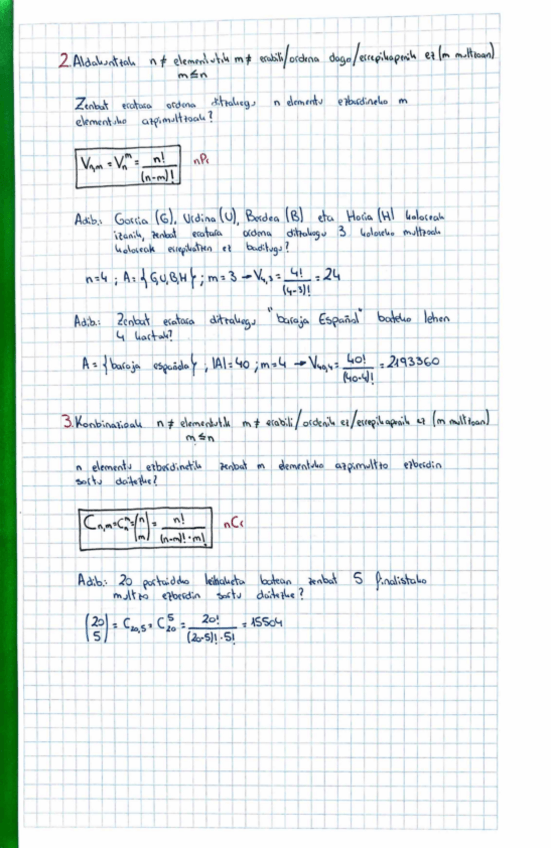 2. Aldakuntzak n ≠ elementutik m ≠ erabili/ordena dago/errepikapenik ez (m multzoan)
m ≤ n
Zenbat eratara ordena ditzakegu n elementu ezberdineko m
elementuko azpimultzoak?
V_{n,m} = V_n^m = n!/(n-m)! nPr
Adib.: Gorria (G), Urdina (U), Berdea (B) eta Horia (H) koloreak
izanik, zenbat eratara ordena ditzakegu 3 koloreko multzoak
koloreak errepikatzen ez baditugu?
n=4 ; A={G,U,B,H} ; m=3 → V_{4,3} = 4!/(4-3)! = 24
Adib.: Zenbat eratara ditzakegu "baraja Español" bateko lehen
4 kartak?
A = {baraja española} , |A|=40 ; m=4 → V_{40,4} = 40!/(40-4)! = 2193360
3. Konbinazioak n ≠ elementutik m ≠ erabili/ordenik ez/errepikapenik ez (m multzoan)
m ≤ n
n elementu ezberdinetik zenbat m elementuko azpimultzo ezberdin
sortu daitezke?
C_{n,m} = C_n^m = (n m) = n!/(n-m)!·m! nCr
Adib.: 20 partaideko lehiaketa batean zenbat 5 finalistako
multzo ezberdin sortu daitezke?
(20 5) = C_{20,5} = C_{20}^5 = 20!/(20-5)!·5! = 15504